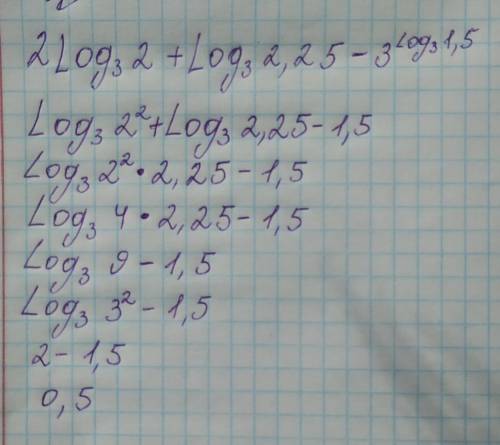 2Log₃2 + Log₃2,25 − 3^Log₃1,5
Log₃2² + Log₃2,25 − 1,5
Log₃2² • 2,25 − 1,5
Log₃4 • 2,25 − 1,5
Log₃9 − 1,5
Log₃3² − 1,5
2 − 1,5
0,5